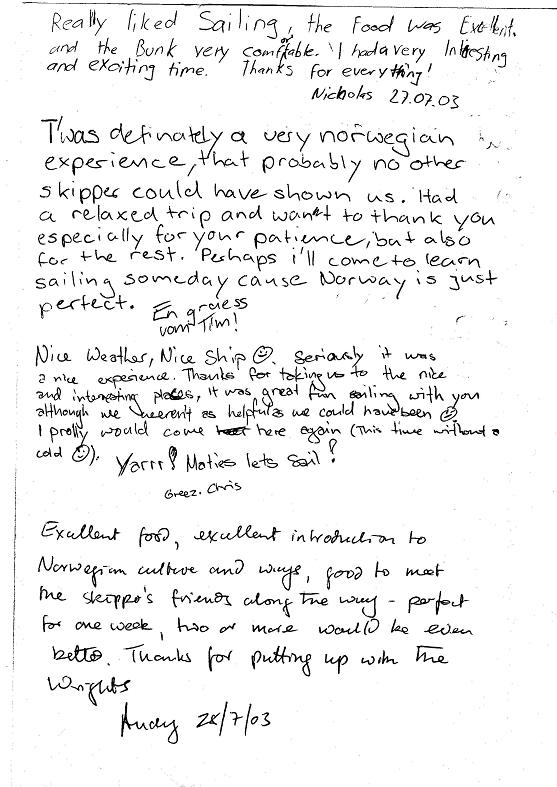 Really liked Sailing, the Food was Excellent.
and the Bunk very comfortable. I had a very Intresting
and exciting time. Thanks for everything!
Nicholas 27.07.03
T'was definately a very norwegian
experience, that probably no other
skipper could have shown us. Had
a relaxed trip and want to thank you
especially for your patience, but also
for the rest. Perhaps i'll come to learn
sailing someday cause Norway is just
perfect.
En gruess
vom Tim!
Nice Weather, Nice Ship ☺. Seriously it was
a nice experience. Thanks for taking us to the nice
and interesting places, it was great fun sailing with you
although we weren't as helpful as we could have been ☺
I prolly would come here again (This time without a
cold ☺). Yarrr! Maties lets sail!
Greez. Chris
Exallent food, exallent introduction to
Norwegian culture and ways, good to meet
the skipper's friends along the way - perfect
for one week, two or more would be even
better. Thanks for putting up with the
Wrights
Andy 28/7/03